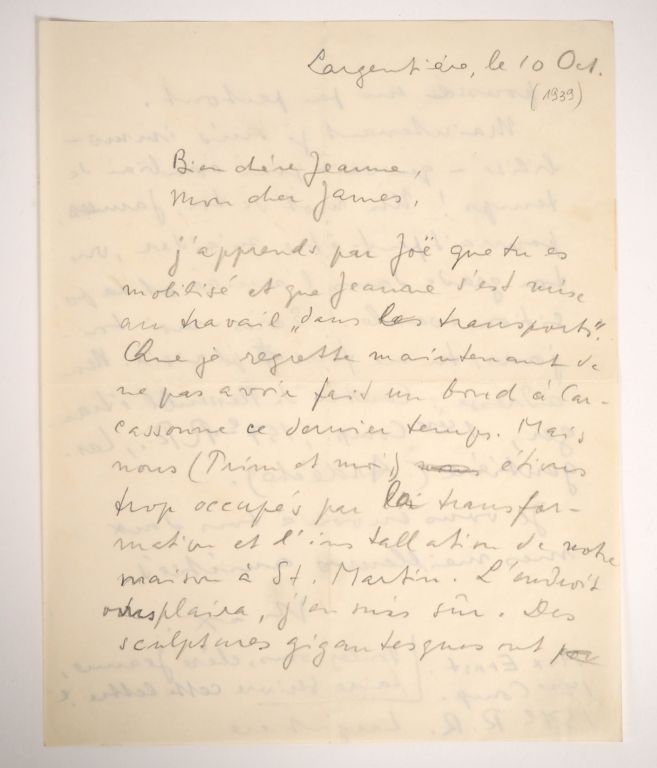 Largentière, le 10 Oct.
(1939)
Bien chère Jeanne,
Mon cher James,
j'apprends par Joë que tu es
mobilisé et que Jeanne s'est mise
au travail „dans les transports".
Que je regrette maintenant de
ne pas avoir fait un bond à Car-
cassonne ce dernier temps. Mais
nous (Prim et moi) étions
trop occupés par la transfor-
mation et l'installation de notre
maison à St. Martin. L'endroit
vous plaira, j'en suis sûr. Des
sculptures gigantesques ont